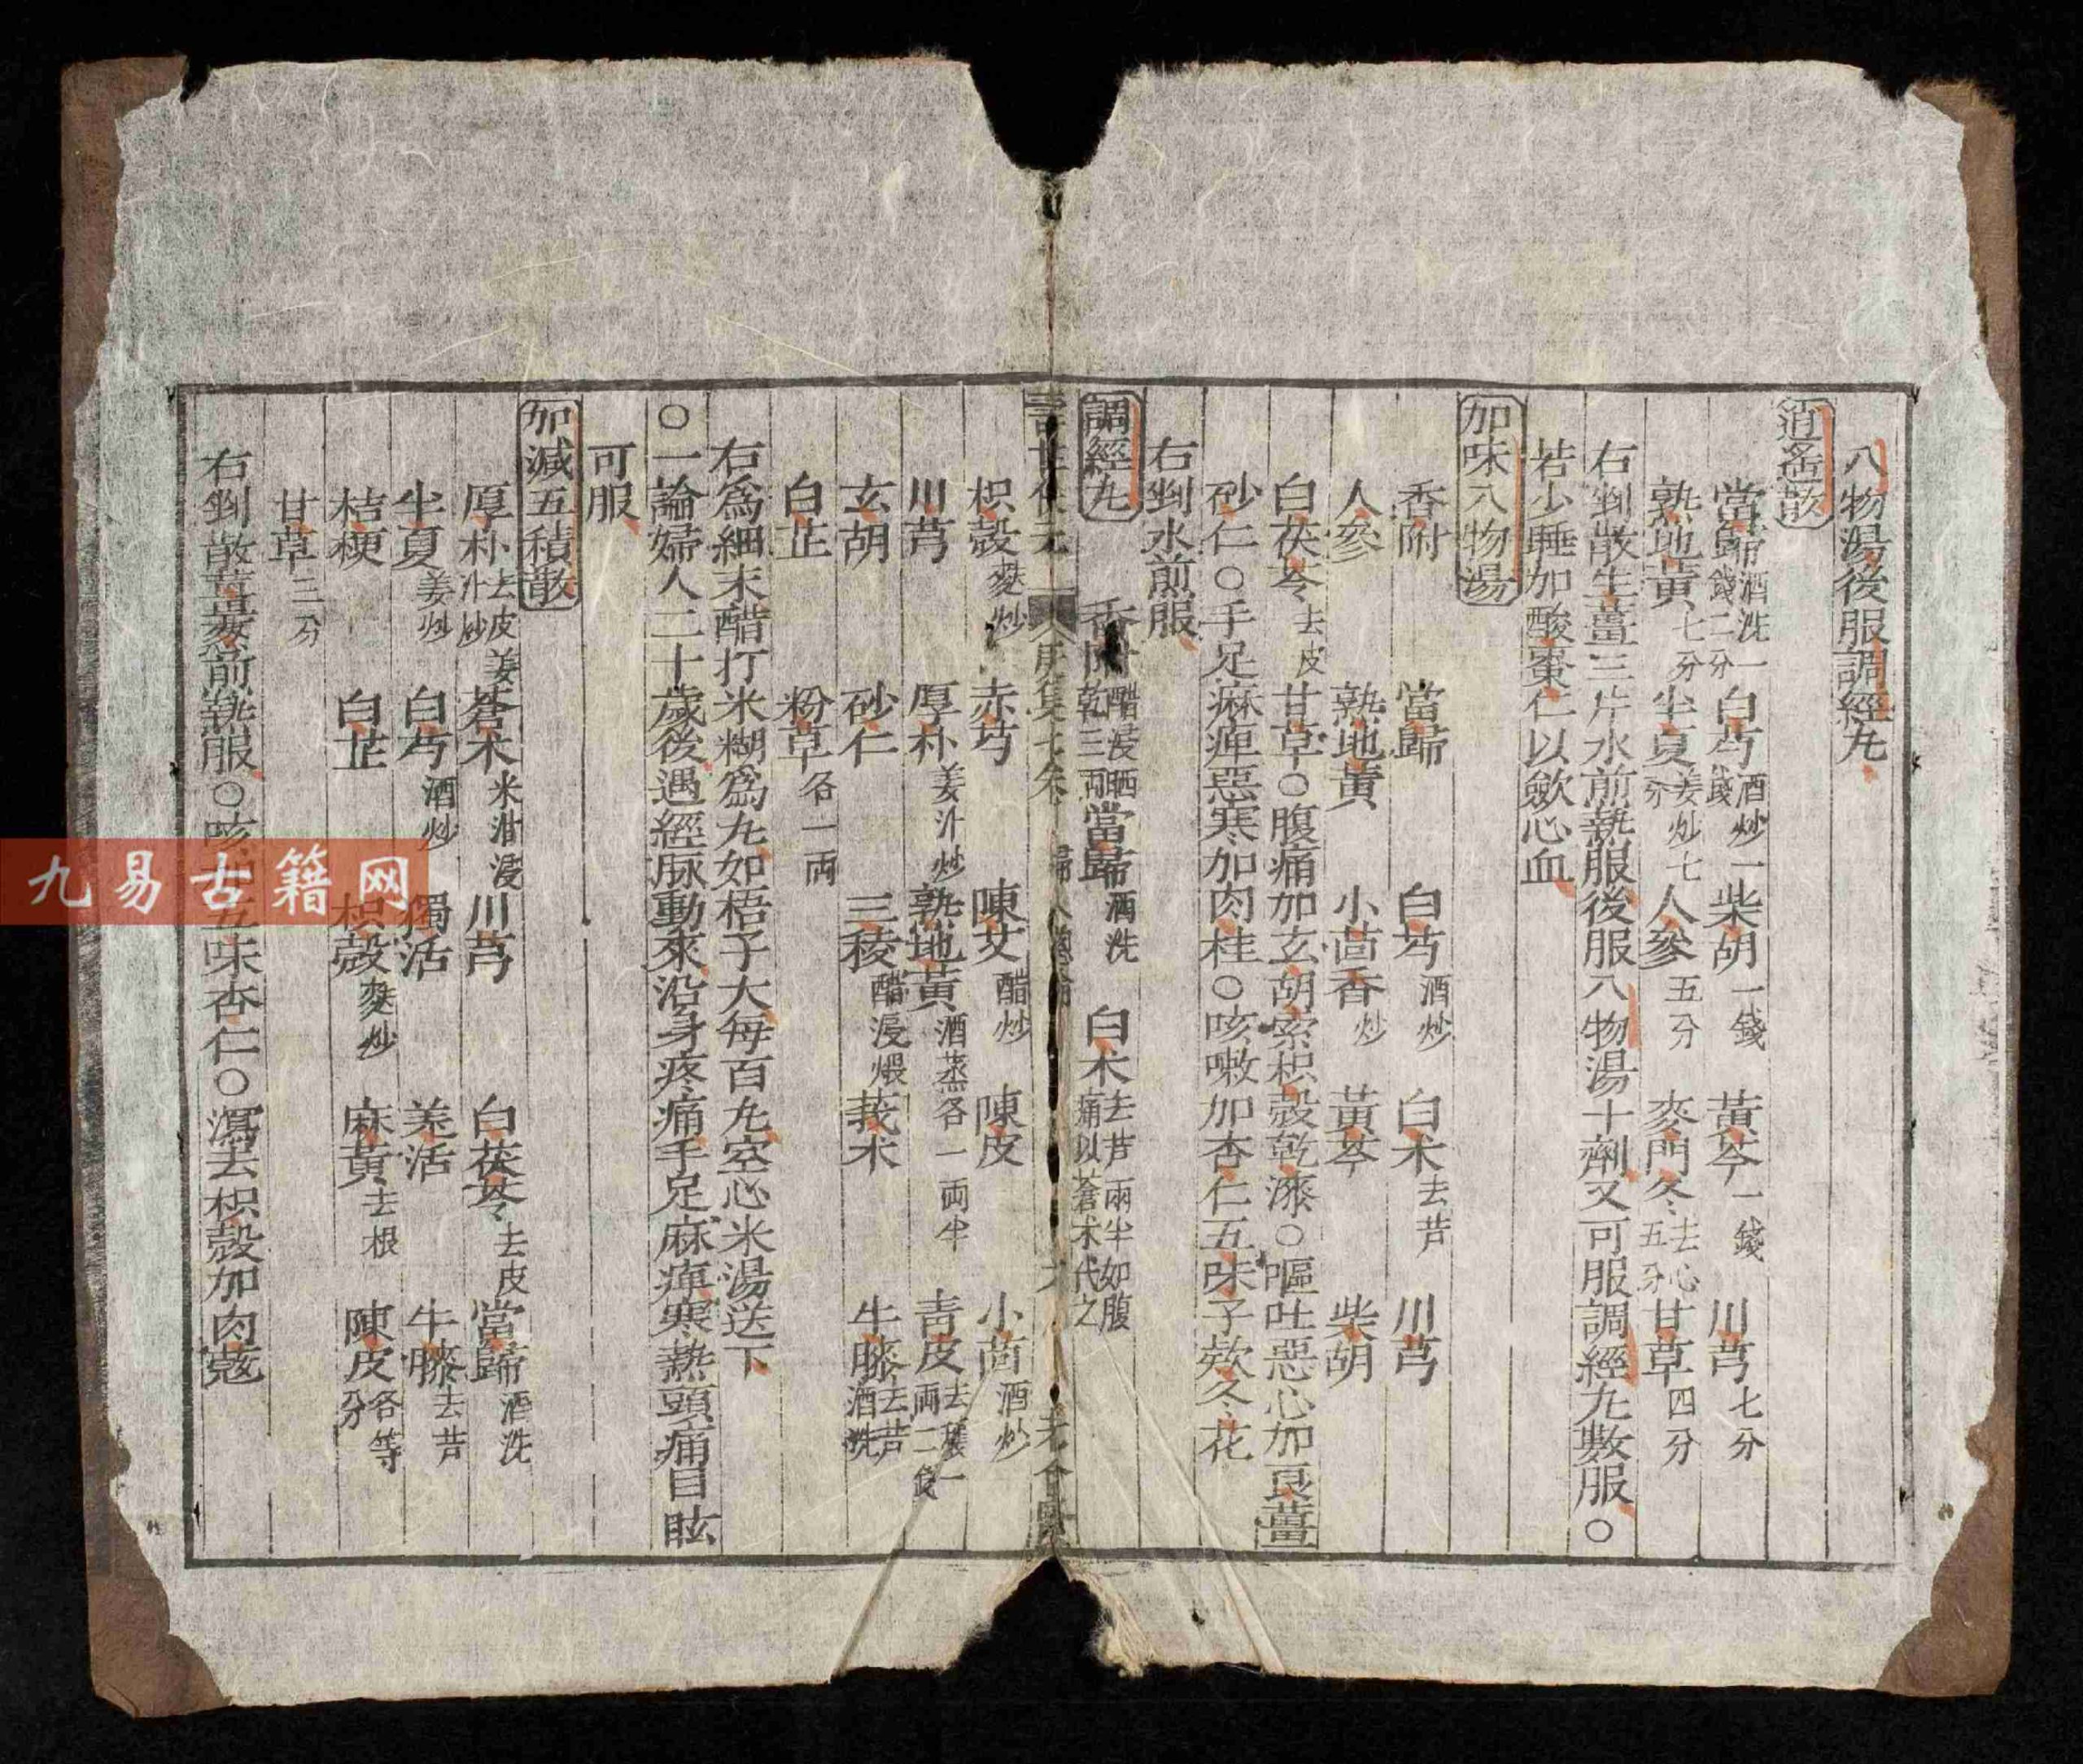 八物湯後服調經丸
逍遙散
當歸酒洗一錢二分 白芍酒炒一錢 柴胡一錢 黃芩一錢 川芎七分
熟地黃七分 半夏姜炒七分 人參五分 麥門冬去心五分 甘草四分
右剉散生薑三片水煎熱服後服八物湯十劑又可服調經丸數服○
若少睡加酸棗仁以歛心血
加味八物湯
香附 當歸 白芍酒炒 白朮去芦 川芎
人參 熟地黃 小茴香炒 黃芩 柴胡
白茯苓去皮 甘草○腹痛加玄胡索枳殼乾漆○嘔吐惡心加良薑
砂仁○手足麻痺惡寒加肉桂○咳嗽加杏仁五味子欵冬花
右剉水煎服
調經丸
香附醋浸晒乾三兩 當歸酒洗 白朮去芦兩半如腹痛以蒼朮代之
壽世保元 庚集七卷 婦人 六
枳殼麩炒 赤芍 陳艾醋炒 陳皮 小茴酒炒
川芎 厚朴姜汁炒 熟地黃酒蒸各一兩半 青皮去穰一兩二錢
玄胡 砂仁 三稜醋浸煨 莪朮 牛膝去芦酒洗
白芷 粉草各一兩
右爲細末醋打米糊爲丸如梧子大每百丸空心米湯送下
○一論婦人二十歲後遇經脉動來沿身疼痛手足麻痺寒熱頭痛目眩
可服
加減五積散
厚朴去皮姜汁炒 蒼朮米泔浸 川芎 白茯苓去皮 當歸酒洗
半夏姜炒 白芍酒炒 獨活 羌活 牛膝去芦
桔梗 白芷 枳殼麩炒 麻黃去根 陳皮各等分
甘草三分
右剉散薑葱煎熱服○咳加五味杏仁○瀉去枳殼加肉蔻
九易古籍网